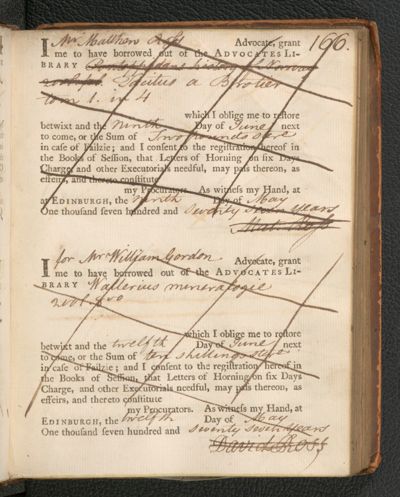 166.
I Mr Matthew Ross Advocate, grant
me to have borrowed out of the ADVOCATES LI-
BRARY
Tacitus a Brotier
tom 1. in 4
which I oblige me to reſtore
betwixt and the ninth Day of June next
to come, or the Sum of Two pounds
in caſe of Failzie; and I conſent to the regiſtration hereof in
the Books of Seſſion, that Letters of Horning on ſix Days
Charge, and other Executorials needful, may paſs thereon, as
effeirs, and thereto conſtitute
my Procurators. As witneſs my Hand, at
at EDINBURGH, the ninth Day of May
One thouſand ſeven hundred and seventy seven years
Matt. Ross
I for Mr William Gordon Advocate, grant
me to have borrowed out of the ADVOCATES LI-
BRARY Wallerius mineralogie
which I oblige me to reſtore
betwixt and the twelfth Day of June next
to come, or the Sum of ten shillings
in caſe of Failzie; and I conſent to the regiſtration hereof in
the Books of Seſſion, that Letters of Horning on ſix Days
Charge, and other Executorials needful, may paſs thereon, as
effeirs, and thereto conſtitute
my Procurators. As witneſs my Hand, at
EDINBURGH, the twelfth Day of May
One thouſand ſeven hundred and seventy seven years
David Ross